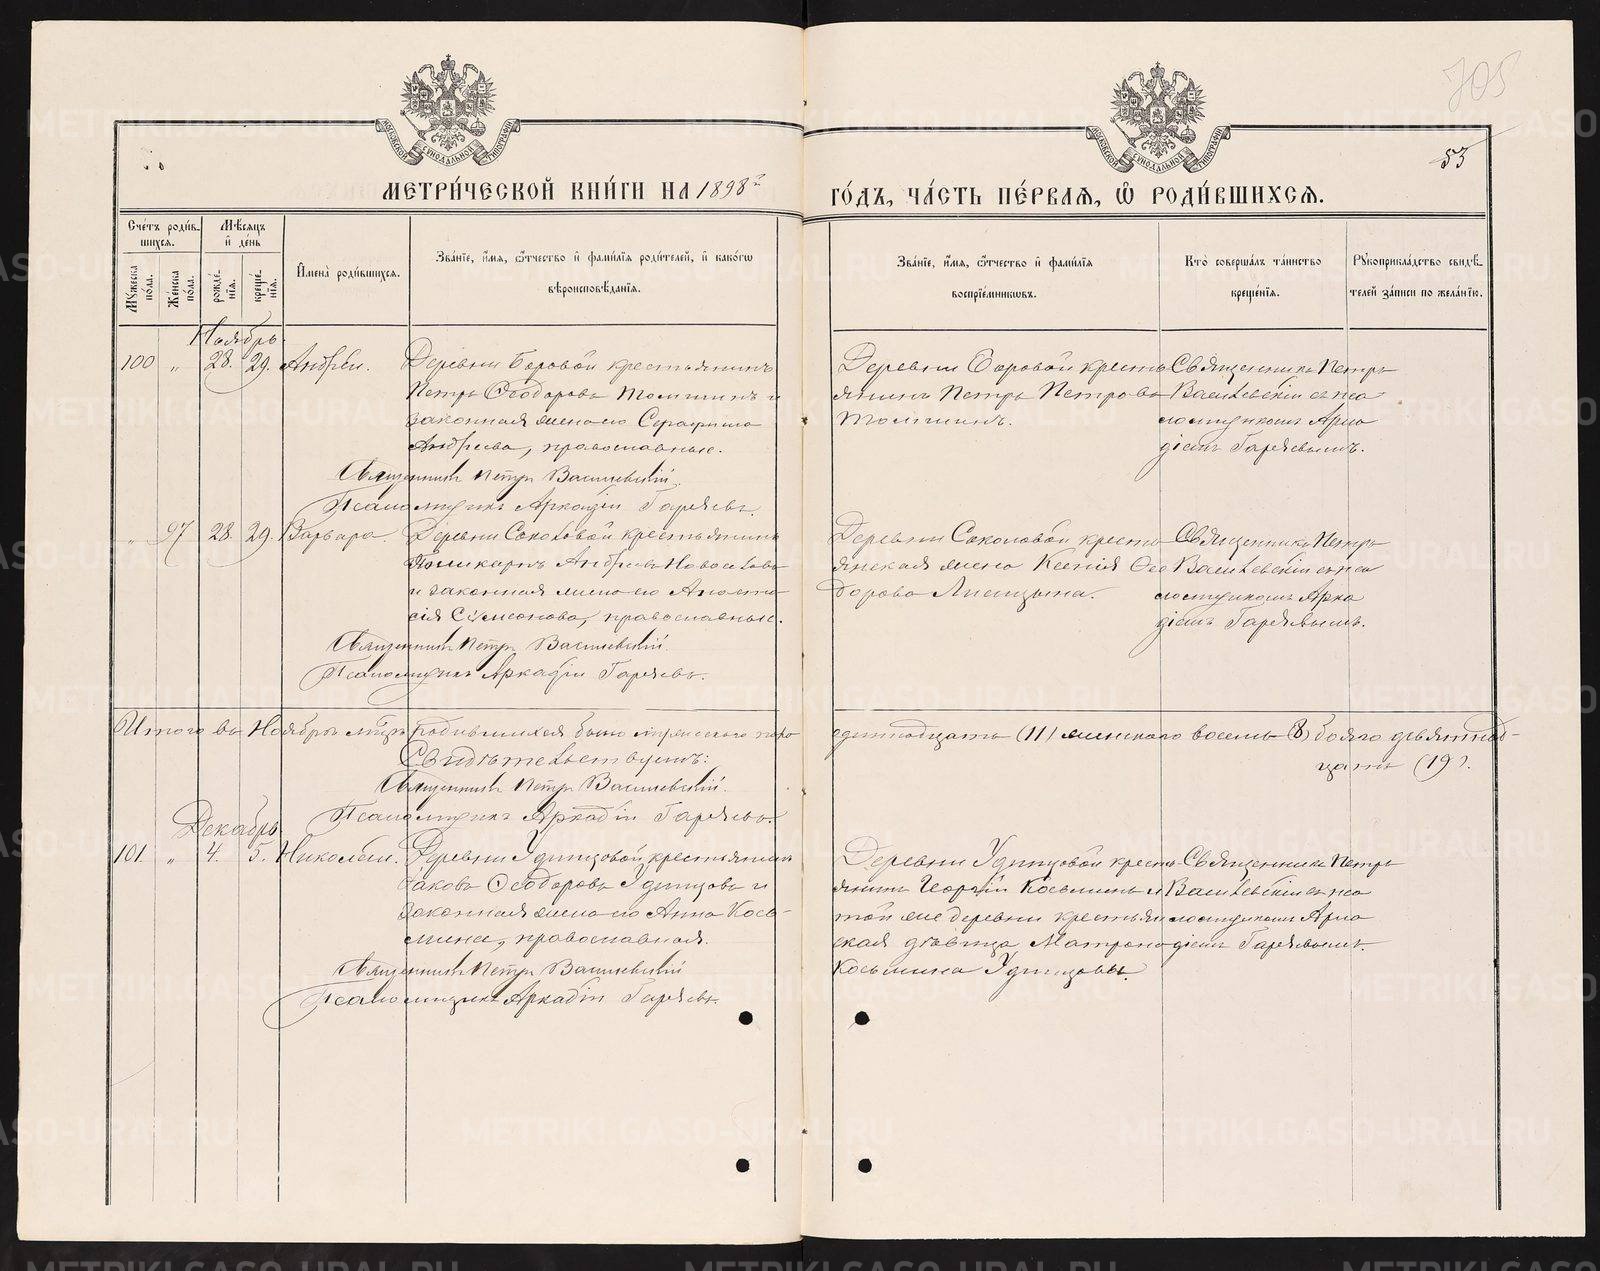 705
53
МОСКОВСКОЙ СѴНОДАЛЬНОЙ ТИПОГРАФІИ
МОСКОВСКОЙ СѴНОДАЛЬНОЙ ТИПОГРАФІИ
МЕТРИ́ЧЕСКОЙ КНИ́ГИ НА 1898й
ГО́ДЪ, ЧА́СТЬ ПЕ́РВАЯ, Ѽ РОДИ́ВШИХСЯ.
Сче́тъ роди́в-
шихся.
Мѣсяцъ
и҆ де́нь
Мꙋжеска по́ла.
Же́нска по́ла.
рожде́-
нїя.
креще́-
нїя.
И҆мена̀ роди́вшихся.
Зва́нїе, и҆́мя, ѻ҆́тчество и҆ фами́лїя роди́телей, и҆ како́гѡ
вѣроисповѣ́данїя.
Зва́нїе, и҆́мя, ѻ҆́тчество и҆ фами́лїя
воспрїе́мникѡвъ.
Кто̀ соверша́лъ та́инство
креще́нїя.
Рꙋкоприкла́дство свидѣ́-
телей за́писи по жела́нїю.
Ноябрь
100 „ 28. 29. Андрей.
Деревни Боровой крестьянинъ
Петръ Ѳеодоровъ Толшинъ и
законная жена его Серафима
Андреева, православные.
Священникъ Петръ Василевскій.
Псаломщикъ Аркадій Гаряевъ.
Деревни Боровой кресть
янинъ Петръ Петровъ
Толшинъ.
Священникъ Петръ
Василевскій съ пса
ломщикомъ Арка
діемъ Гаряевымъ.
„ 97 28. 29. Варвара.
Деревни Соколовой крестьянинъ
Поликарпъ Андреевъ Новоселовъ
и законная жена его Анаста
сія Симеонова, православные.
Священникъ Петръ Василевскій.
Псаломщикъ Аркадій Гаряевъ.
Деревни Соколовой кресть
янская жена Ксенія Ѳео
дорова Лисицына.
Священникъ Петръ
Василевскій съ пса
ломщикомъ Арка
діемъ Гаряевымъ.
Итого въ Ноябрѣ мцѣ родившихся было мужескаго пола
одиннадцать (11) женскаго восемь (8) обоего девятнад-
цать (19).
Свидѣтельствуемъ:
Священникъ Петръ Василевскій.
Псаломщикъ Аркадій Гаряевъ.
Декабрь
101. „ 4. 5. Николай.
Деревни Удинцовой крестьянинъ
Іаковъ Ѳеодоровъ Удинцовъ и
законная жена его Анна Козь-
мина, православная.
Священникъ Петръ Василевскій
Псаломщикъ Аркадій Гаряевъ.
Деревни Удинцовой кресть
янинъ Георгій Косьминъ и
той же деревни крестьян
ская дѣвица Матрона
Косьмина Удинцовы.
Священникъ Петръ
Василевскій съ пса
ломщикомъ Арка
діемъ Гаряевымъ.
METRIKI.GASO-URAL.RU